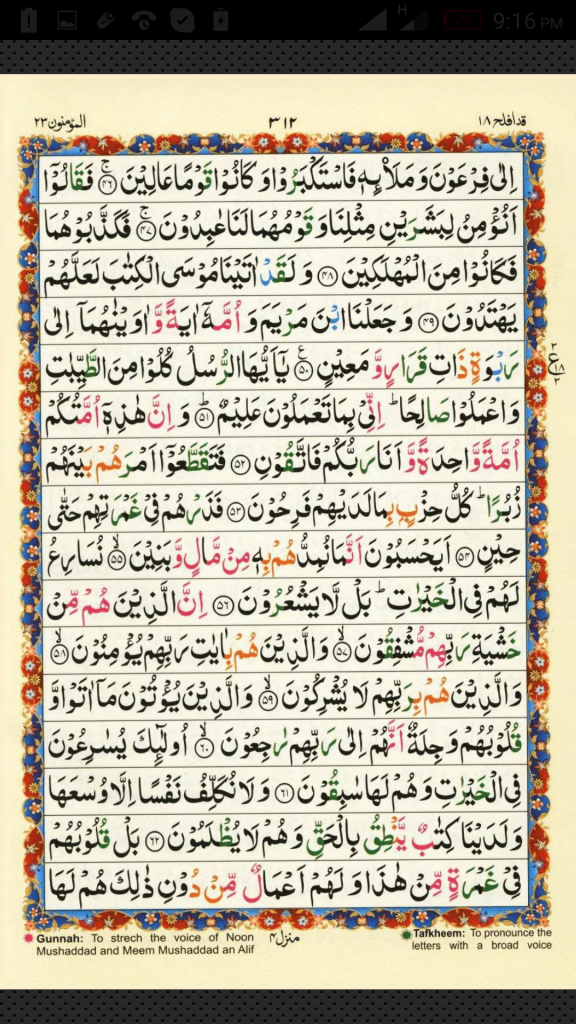 H
7%
9:16 PM
قد افلح ١٨
٣١٢
المؤمنون ٢٣
اِلٰى فِرْعَوْنَ وَ مَلَا۠ئِهٖ فَاسْتَكْبَرُوْا وَ كَانُوْا قَوْمًا عَالِیْنَ ۚ‏﴿۴۶﴾ فَقَالُوْۤا
اَنُؤْمِنُ لِبَشَرَیْنِ مِثْلِنَا وَ قَوْمُهُمَا لَنَا عٰبِدُوْنَ ۚ‏﴿۴۷﴾ فَكَذَّبُوْهُمَا
فَكَانُوْا مِنَ الْمُهْلَكِیْنَ ﴿۴۸﴾ وَ لَقَدْ اٰتَیْنَا مُوْسَى الْكِتٰبَ لَعَلَّهُمْ
یَهْتَدُوْنَ ﴿۴۹﴾ وَ جَعَلْنَا ابْنَ مَرْیَمَ وَ اُمَّهٗۤ اٰیَةً وَّ اٰوَیْنٰهُمَاۤ اِلٰى
رَبْوَةٍ ذَاتِ قَرَارٍ وَّ مَعِیْنٍ ﴿۵۰﴾ یٰۤاَیُّهَا الرُّسُلُ كُلُوْا مِنَ الطَّیِّبٰتِ
ع ١٨
وَ اعْمَلُوْا صَالِحًا ؕ اِنِّیْ بِمَا تَعْمَلُوْنَ عَلِیْمٌ ؕ‏﴿۵۱﴾ وَ اِنَّ هٰذِهٖۤ اُمَّتُكُمْ
اُمَّةً وَّاحِدَةً وَّ اَنَا رَبُّكُمْ فَاتَّقُوْنِ ﴿۵۲﴾ فَتَقَطَّعُوْۤا اَمْرَهُمْ بَیْنَهُمْ
زُبُرًا ؕ كُلُّ حِزْبٍۭ بِمَا لَدَیْهِمْ فَرِحُوْنَ ﴿۵۳﴾ فَذَرْهُمْ فِیْ غَمْرَتِهِمْ حَتّٰى
حِیْنٍ ﴿۵۴﴾ اَیَحْسَبُوْنَ اَنَّمَا نُمِدُّهُمْ بِهٖ مِنْ مَّالٍ وَّ بَنِیْنَ ۙ‏﴿۵۵﴾ نُسَارِعُ
لَهُمْ فِی الْخَیْرٰتِ ؕ بَلْ لَّا یَشْعُرُوْنَ ﴿۵۶﴾ اِنَّ الَّذِیْنَ هُمْ مِّنْ
خَشْیَةِ رَبِّهِمْ مُّشْفِقُوْنَ ۙ‏﴿۵۷﴾ وَ الَّذِیْنَ هُمْ بِاٰیٰتِ رَبِّهِمْ یُؤْمِنُوْنَ ۙ‏﴿۵۸﴾
وَ الَّذِیْنَ هُمْ بِرَبِّهِمْ لَا یُشْرِكُوْنَ ۙ‏﴿۵۹﴾ وَ الَّذِیْنَ یُؤْتُوْنَ مَاۤ اٰتَوْا وَّ
قُلُوْبُهُمْ وَجِلَةٌ اَنَّهُمْ اِلٰى رَبِّهِمْ رٰجِعُوْنَ ۙ‏﴿۶۰﴾ اُولٰٓئِكَ یُسٰرِعُوْنَ
فِی الْخَیْرٰتِ وَ هُمْ لَهَا سٰبِقُوْنَ ﴿۶۱﴾ وَ لَا نُكَلِّفُ نَفْسًا اِلَّا وُسْعَهَا
وَ لَدَیْنَا كِتٰبٌ یَّنْطِقُ بِالْحَقِّ وَ هُمْ لَا یُظْلَمُوْنَ ﴿۶۲﴾ بَلْ قُلُوْبُهُمْ
فِیْ غَمْرَةٍ مِّنْ هٰذَا وَ لَهُمْ اَعْمَالٌ مِّنْ دُوْنِ ذٰلِكَ هُمْ لَهَا
منزل ۴
Gunnah: To strech the voice of Noon
Mushaddad and Meem Mushaddad an Alif
Tafkheem: To pronounce the
letters with a broad voice